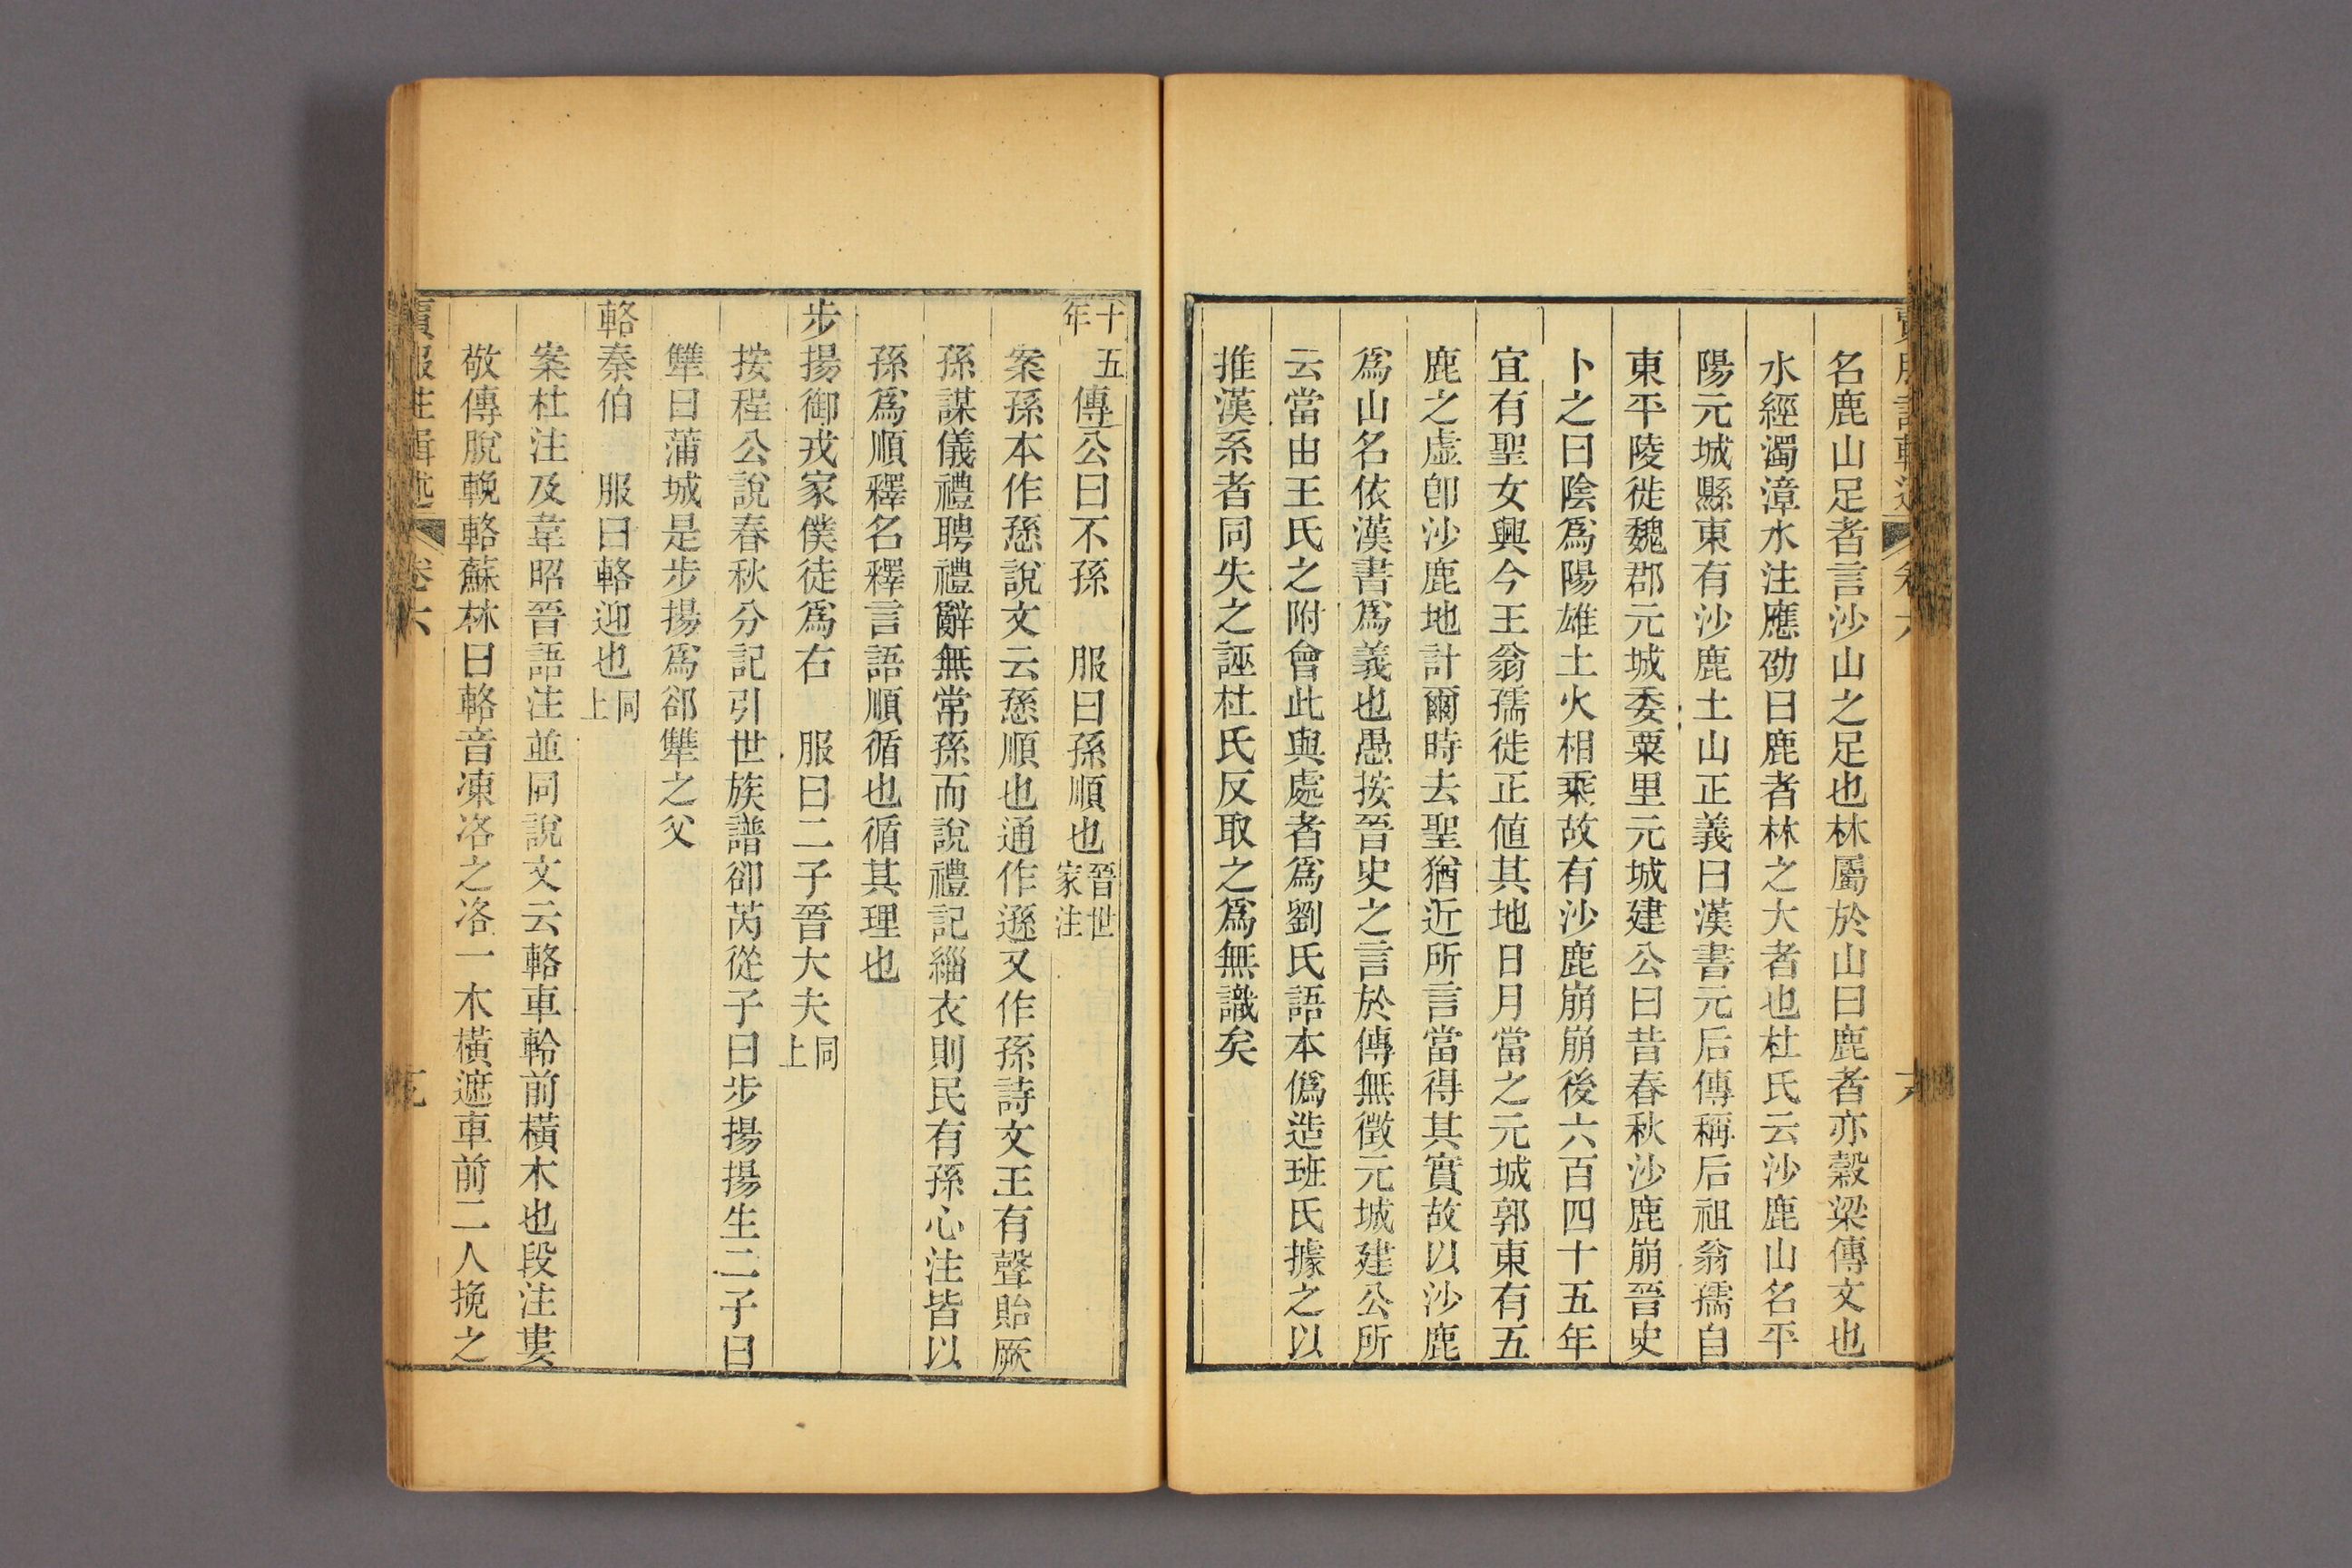 名鹿山足者言沙山之足也林屬於山曰鹿者亦穀梁傳文也
水經濁漳水注應劭曰鹿者林之大者也杜氏云沙鹿山名平
陽元城縣東有沙鹿土山正義曰漢書元后傳稱后祖翁孺自
東平陵徙魏郡元城委粟里元城建公曰昔春秋沙鹿崩晉史
卜之曰陰爲陽雄土火相乘故有沙鹿崩崩後六百四十五年
宜有聖女興今王翁孺徙正值其地日月當之元城郭東有五
鹿之虛卽沙鹿地計爾時去聖猶近所言當得其實故以沙鹿
爲山名依漢書爲義也愚按晉史之言於傳無徵元城建公所
云當由王氏之附會此與處者爲劉氏語本僞造班氏據之以
推漢系者同失之誣杜氏反取之爲無識矣
十五年傳公曰不孫　服曰孫順也晉世家注
案孫本作愻說文云愻順也通作遜又作孫詩文王有聲貽厥
孫謀儀禮聘禮辭無常孫而說禮記緇衣則民有孫心注皆以
孫爲順釋名釋言語順循也循其理也
步揚御戎家僕徒爲右　服曰二子晉大夫同上
按程公說春秋分記引世族譜卻芮從子曰步揚揚生二子曰
犨曰蒲城是步揚爲郤犨之父
輅秦伯　服曰輅迎也同上
案杜注及韋昭晉語注並同說文云輅車軨前橫木也段注婁
敬傳脫輓輅蘇林曰輅音凍洛之洛一木橫遮車前二人挽之
賈服注輯述　卷六